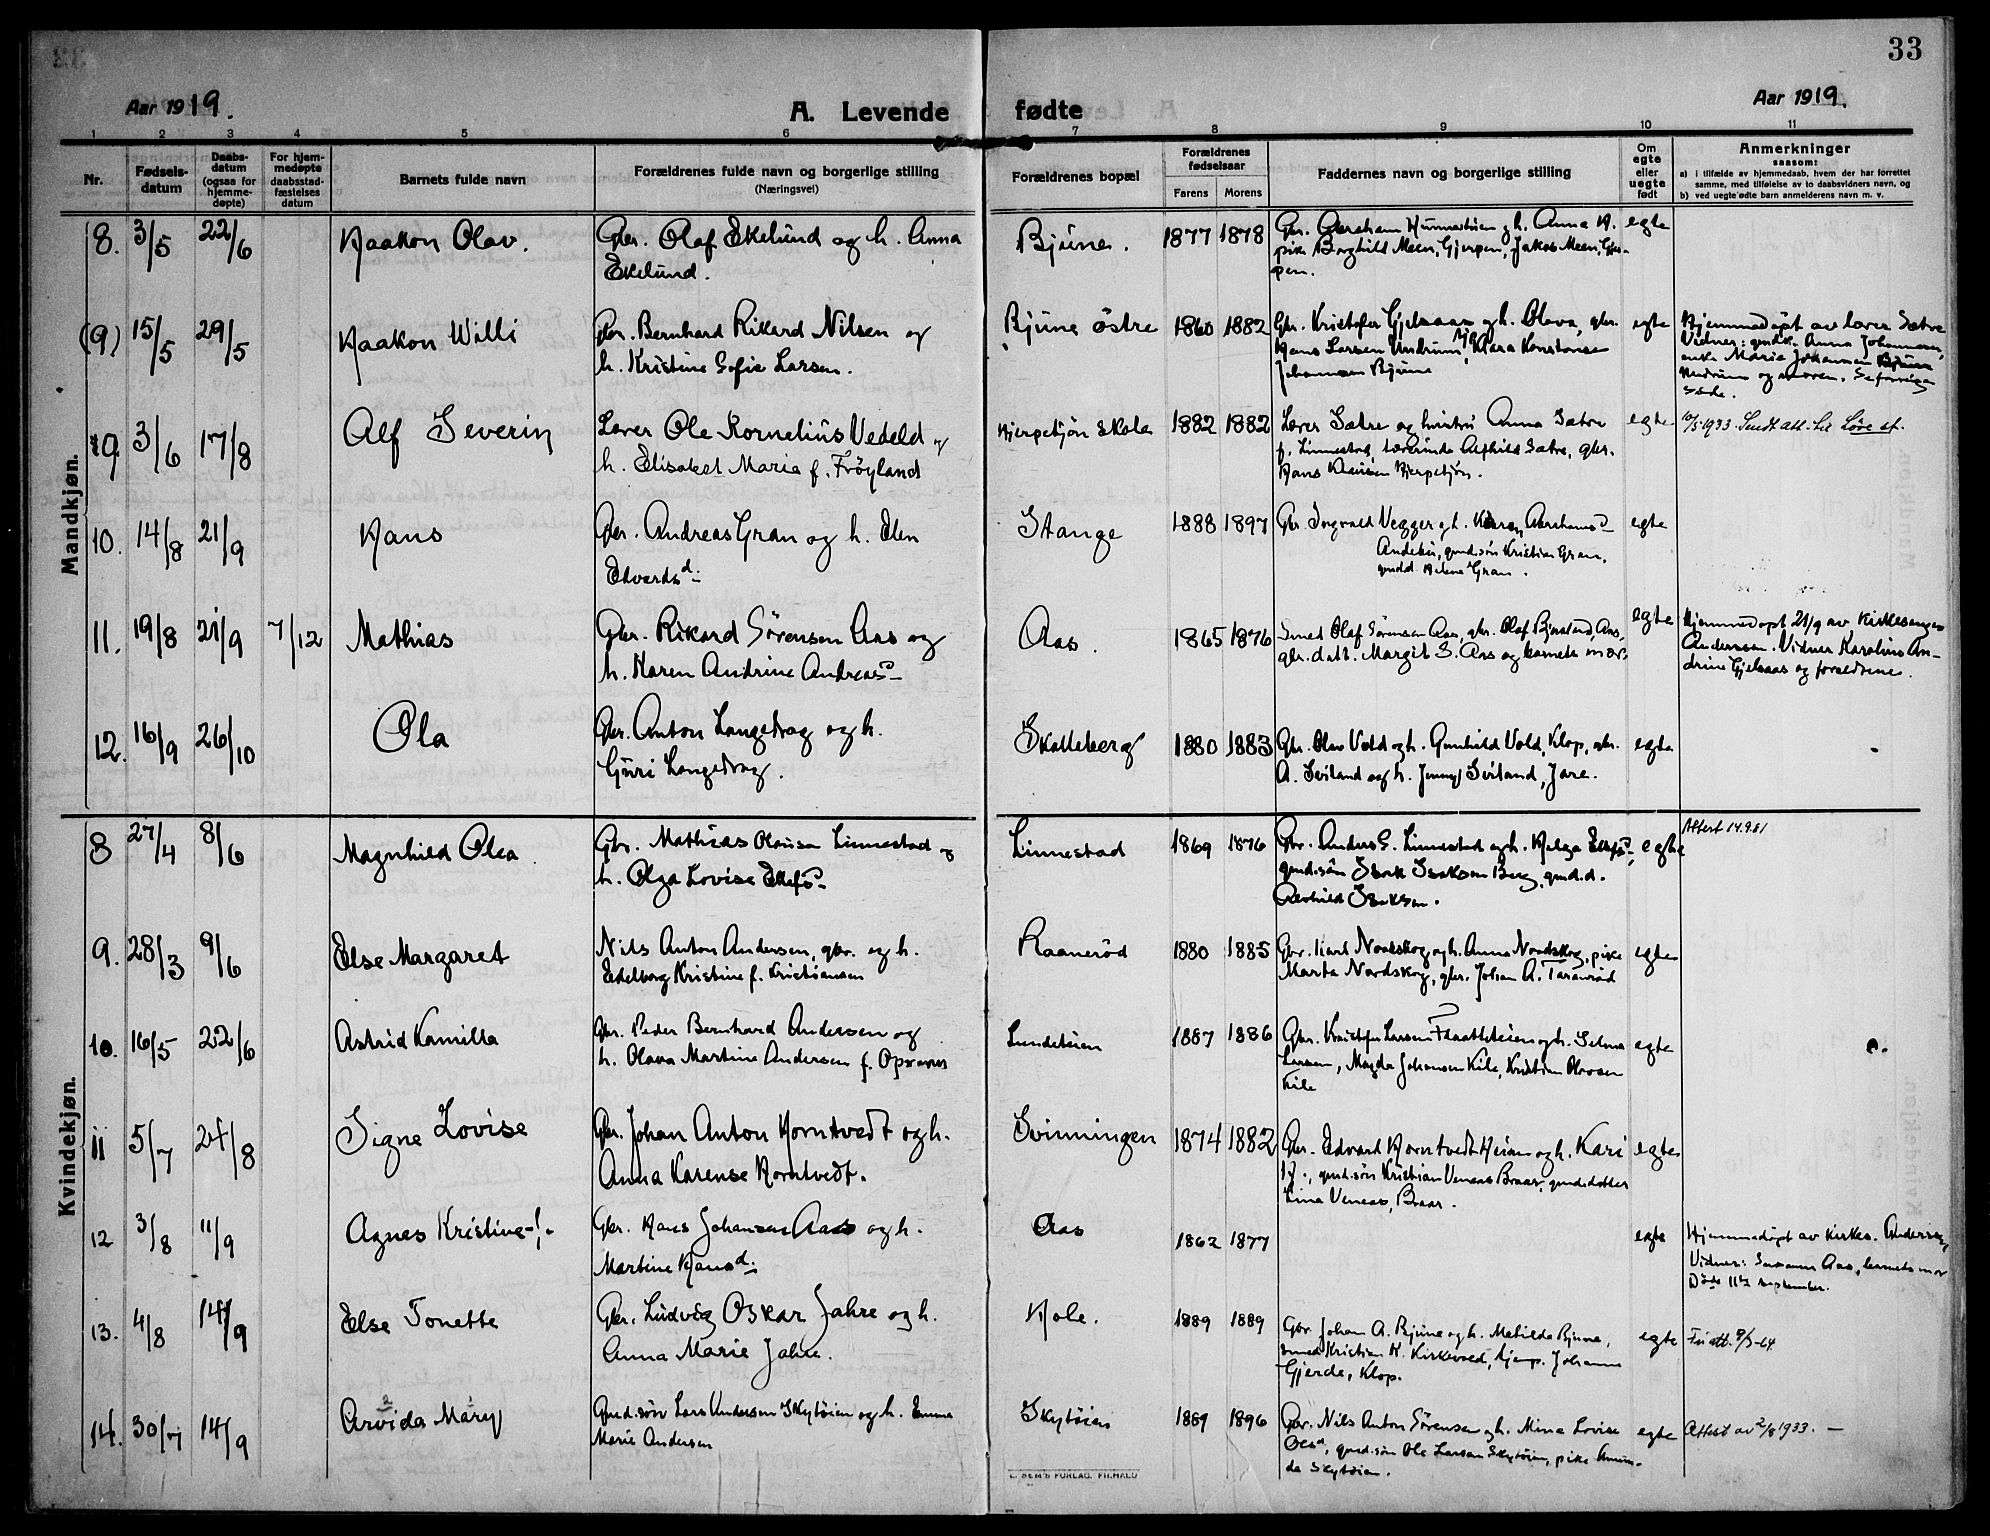 33
Aar 1919.
A. Levende fødte
Aar 1919.
1 2 3 4 5 6 7 8 9 10 11
Nr.
Fødsels-
datum
Daabs-
datum
(ogsaa for
hjemme-
døpte)
For hjem-
medøpte
daabsstad-
fæstelses
datum
Barnets fulde navn
Forældrenes fulde navn og borgerlige stilling
(Næringsvei)
Forældrenes bopæl
Forældrenes
fødselsaar
Farens Morens
Faddernes navn og borgerlige stilling
Om
egte
eller
uegte
født
Anmerkninger
saasom:
a) i tilfælde av hjemmedaab, hvem der har forrettet
samme, med tilføielse av to daabsvidners navn, og
b) ved uegte fødte barn anmelderens navn m. v.
Mandkjøn.
8. 3/5 22/6 Haakon Olav. Gbr. Olaf Ekelund og h. Anna
Ekelund.
Bjune. 1877 1878 Gbr. Abraham og h. Anna H.
pike Borghild Meen, Gjerpen, Jakob Meen, Gjer-
pen.
egte
(9) 15/5 29/5 Haakon Willi Gbr. Bernhard Rikard Nilsen og
h. Kristine Sofie Larsen.
Bjune østre 1860 1882 Gbr. Kristofer Gjelsaas og h. Olava, gbr.
Hans Larsen Undrum, Klara Konstanse
Johannsen Bjune
egte
Hjemmedøpt av lærer Sætre
Vidner: gmdk. Anna Johannesen,
enke Marie Johansen Bjune
Undrum og moren. Se forrige
side.
9. 3/6 17/8 Alf Severin Lærer Ole Kornelius Vedeld og
h. Elisabet Marie f. Frøyland
Hjerpetjøn skole 1882 1882 Lærer Sætre og hustru Anna Sætre
f. Linnestad, lærerinde Alfhild Sætre, gbr.
Hans Klausen Hjerpetjøn.
egte
10/5 1933. Sendt att. til Løve st.
10. 14/8 21/9 Hans Gbr. Andreas Gran og h. Elen
Edvardsd.
Stange 1888 1897 Gbr. Ingvald Vegger og h. Karen Abrahamsd
Andebu, gmd.søn Kristian Gran,
gmdd. Helene Gran.
egte
11. 19/8 21/9 7/12 Mathias Gbr. Rikard Sørensen Aas og
h. Karen Andrine Andreasd
Aas. 1865 1876 Smed Olaf Sørensen Aas, gbr. Olaf Bjørstad, Aas,
gbr.datt. Margit S. Aas og barnets mor.
egte
Hjemmedøpt 21/9 av Kirkesanger
Anderssen. Vidner Karoline An-
drine Gjelsaas og forældrene.
12. 16/9 26/10 Ola Gbr. Anton Langedrag og h.
Guri Langedrag.
Skalleberg 1880 1883 Gbr. Olav Vold og h. Gunhild Vold, Klop, gbr.
A. Sviland og h. Jenny Sviland, Jare.
egte
Kvindekjøn.
8 27/4 8/6 Magnhild Olea. Gbr. Mathias Olausen Linnestad og
h. Olga Lovise Ellefsd
Linnestad 1869 1876 Gbr. Anders G. Linnestad og h. Helga Ellefsd,
gmd.søn Isak Isaksen Berg, gmd.d.
Isaksen.
egte
Attest 14.9.61
9. 28/3 9/6 Else Margaret Nils Anton Andersen, gbr. og h.
Edelborg Kristine f. Kristiansen
Raanerød 1880 1885 Gbr. Karl Nordskog og h. Anna Nordskog, pike
Marta Nordskog, gbr. Johan A. Taranrød
egte
10. 16/5 22/6 Astrid Kamilla Gbr. Peder Bernhard Andersen og
h. Olava Martine Andersen f.
Lundeteien 1887 1886 Gbr. Kristofer Larsen Flaatteteien og h. Selma
Larsen, Magda Johansen Kile, Kristian Olavsen
Kile
egte
11 5/7 24/8 Signe Lovise Gbr. Johan Anton Horntvedt og h.
Anna Karense Horntvedt.
Svinningen 1874 1882 Gbr. Edvard Horntvedt Heian og h. Kari
H., gmd.søn Kristian Veneas Braar, gmd.datter
Lina Veneas, Braar.
egte
12 3/8 11/9 Agnes Kristine Gbr. Hans Johansen Aas og h.
Martine Hansd.
Aas 1862 1877
egte
Hjemmedøpt av Kirkes. Andersen,
Vidner: Susanne Aas, barnets mor
Døde 11te september.
13. 4/8 14/9 Else Tonette Gbr. Ludvig Oskar Jahre og h.
Anna Marie Jahre.
Hole. 1889 1889 Gbr. Johan A. Bjune og h. Matilde Bjune,
smed Kristian K. Kirkevold, hjemp. Johanne
Gjerde, Klop.
egte
Fri att. 9/3-64
14. 30/7 14/9 Arvida Mary Gmd.søn Lars Andersen Skytøien og h. Emma
Marie Andersen
Skytøien 1889 1896 Gbr. Nils Anton Sørensen og h. Mina Lovise
Olsd, gmd.søn Ole Larsen Skytøien, pike Amun-
da Skytøien.
egte
Attest av 2/8 1933. —
E. SEM'S FORLAG, FR.HALD